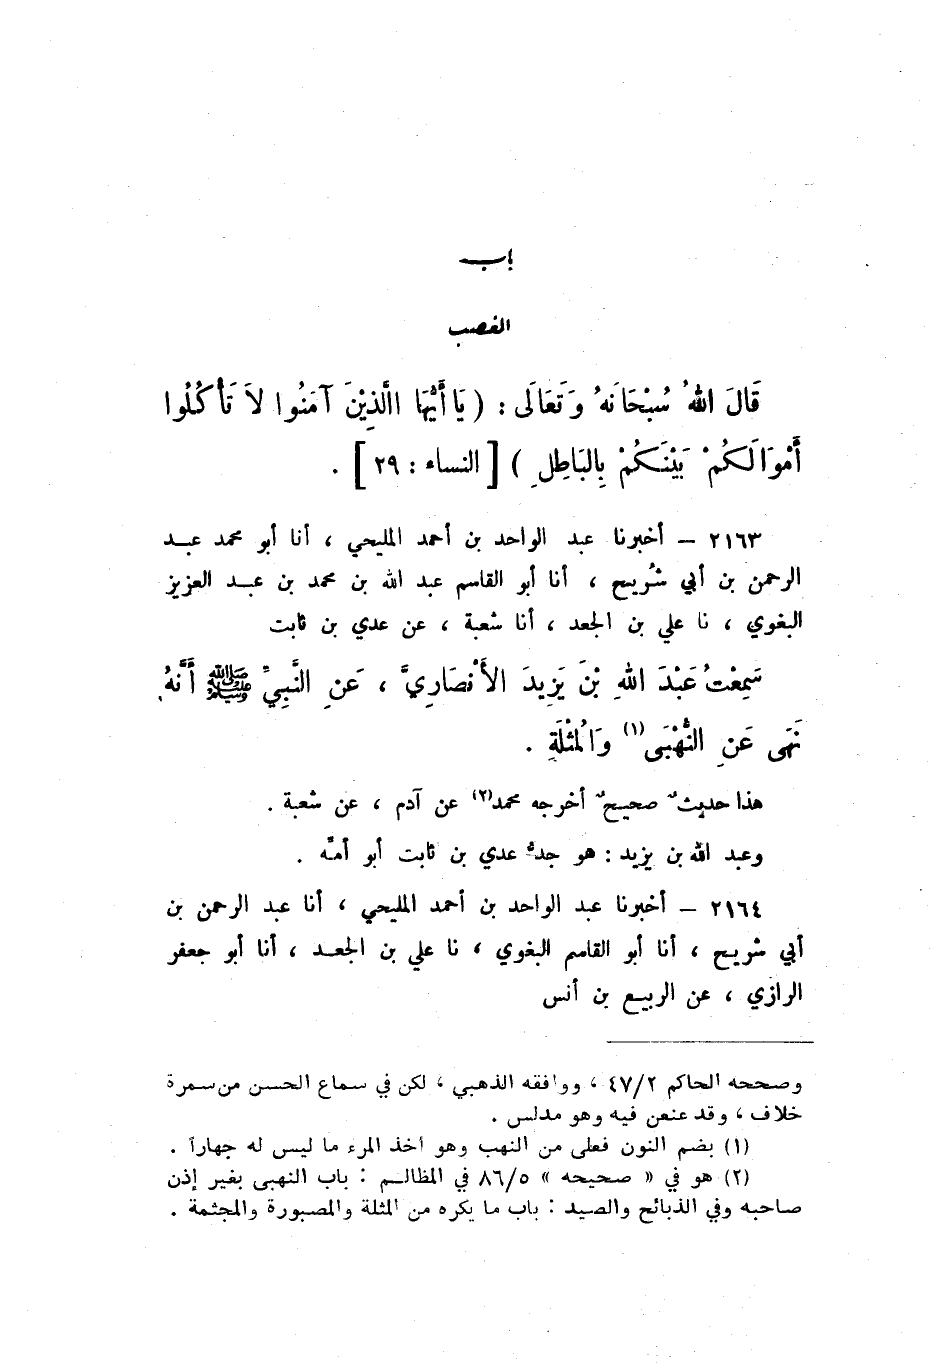 باب
الغصب
قَالَ اللهُ سُبْحَانَهُ وَتَعَالَى : ( يَا أَيُّهَا الَّذِيْنَ آمَنُوا لاَ تَأكُلُوا
أَمْوَالَكُمْ بَيْنَكُمْ بِالبَاطِلِ ) [ النساء : ٢٩ ] .
٢١٦٣ – أخبرنا عبد الواحد بن أحمد المليحي ، أنا أبو محمد عبد
الرحمن بن أبي شُريح ، أنا أبو القاسم عبد الله بن محمد بن عبد العزيز
البغوي ، نا علي بن الجعد ، أنا شعبة ، عن عدي بن ثابت
سَمِعْتُ عَبْدَ اللهِ بْنَ يَزِيدَ الأَنْصَارِيَّ ، عَنِ النَّبِيِّ ﷺ أَنَّهُ
نَهَى عَنِ النُّهْبَى (١) وَالمُثْلَةِ .
هذا حديثٌ صحيحٌ أخرجه محمد (٢) عن آدم ، عن شعبة .
وعبد الله بن يزيد : هو جدُّ عدي بن ثابت أبو أمِّه .
٢١٦٤ – أخبرنا عبد الواحد بن أحمد المليحي ، أنا عبد الرحمن بن
أبي شريح ، أنا أبو القاسم البغوي ، نا علي بن الجعد ، أنا أبو جعفر
الرازي ، عن الربيع بن أنس
وصححه الحاكم ٤٧/٢ ، ووافقه الذهبي ، لكن في سماع الحسن من سمرة
خلاف ، وقد عنعن فيه وهو مدلس .
(١) بضم النون فعلى من النهب وهو أخذ المرء ما ليس له جهاراً .
(٢) هو في « صحيحه » ٨٦/٥ في المظالم : باب النهبى بغير إذن
صاحبه وفي الذبائح والصيد : باب ما يكره من المثلة والمصبورة والمجثمة .